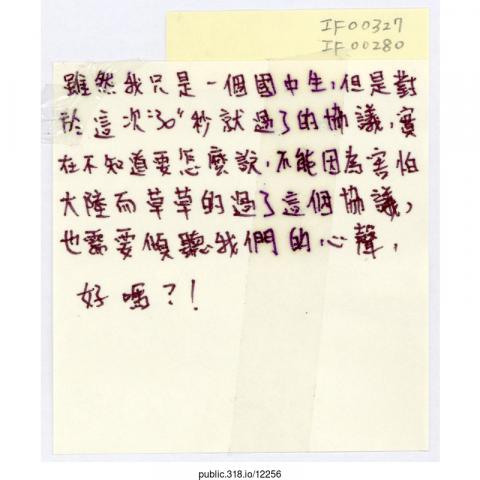 IF00327
IF00280
雖然我只是一個國中生,但是對
於這次"30"秒就過了的協議,實
在不知道要怎麼說,不能因為害怕
大陸而草草的過了這個協議,
也需要傾聽我們的心聲,
好嗎?!
public.318.io/12256